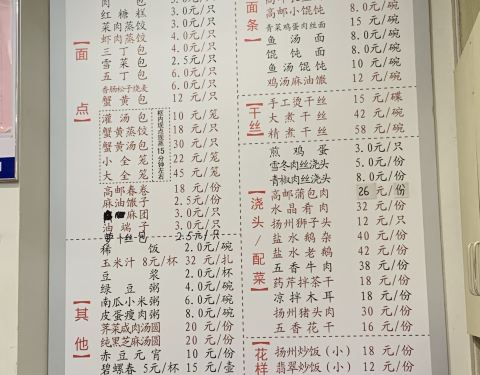 【面点】
肉包 3.0元/只
红糖糕 3.0元/只
菜肉蒸饺 3.0元/只
虾肉蒸饺 4.0元/只
三丁包 3.0元/只
雪菜包 2.5元/只
五丁包 6.0元/只
香肠松子烧麦 6.0元/只
蟹黄包 12元/只
灌汤包 10元/笼
蟹黄蒸饺 18元/笼
蟹黄汤包 30元/笼
小全笼 22元/笼
大全笼 45元/笼
框内现点现蒸15分钟左右
高邮春卷 18元/份
麻油馓子 2.5元/份
麻团 3.0元/只
油端子 3.0元/只
2.5元/只
【其他】
稀饭 2.0元/碗
玉米汁 8元/杯 32元/扎
豆浆 2.0元/杯
绿豆粥 4.0元/碗
南瓜小米粥 6.0元/碗
皮蛋瘦肉粥 8.0元/碗
荠菜咸肉汤圆 20元/份
纯黑芝麻汤圆 20元/份
赤豆元宵 10元/份
碧螺春 5元/杯 15元/壶
面条】
8.0元/碗
高邮小馄饨 8.0元/碗
青菜鸡蛋肉丝面 15元/碗
鱼汤面 8.0元/碗
馄饨面 8.0元/碗
鱼汤馄饨 10元/碗
鸡汤麻油馓 12元/碗
【干丝】
手工烫干丝 15元/碟
大煮干丝 42元/碗
精煮干丝 58元/碗
【浇头/配菜】
煎鸡蛋 3.0元/只
雪冬肉丝浇头 5.0元/份
青椒肉丝浇头 8.0元/份
高邮蒲包肉 26元/份
水晶肴肉 32元/份
扬州狮子头 12元/只
盐水鹅杂 40元/份
盐水老鹅 42元/份
五香牛肉 38元/份
药芹拌茶干 18元/份
凉拌木耳 18元/份
扬州猪头肉 30元/份
五香花干 16元/份
【花样
扬州炒饭（小） 18元/份
翡翠炒饭（小） 12元/份